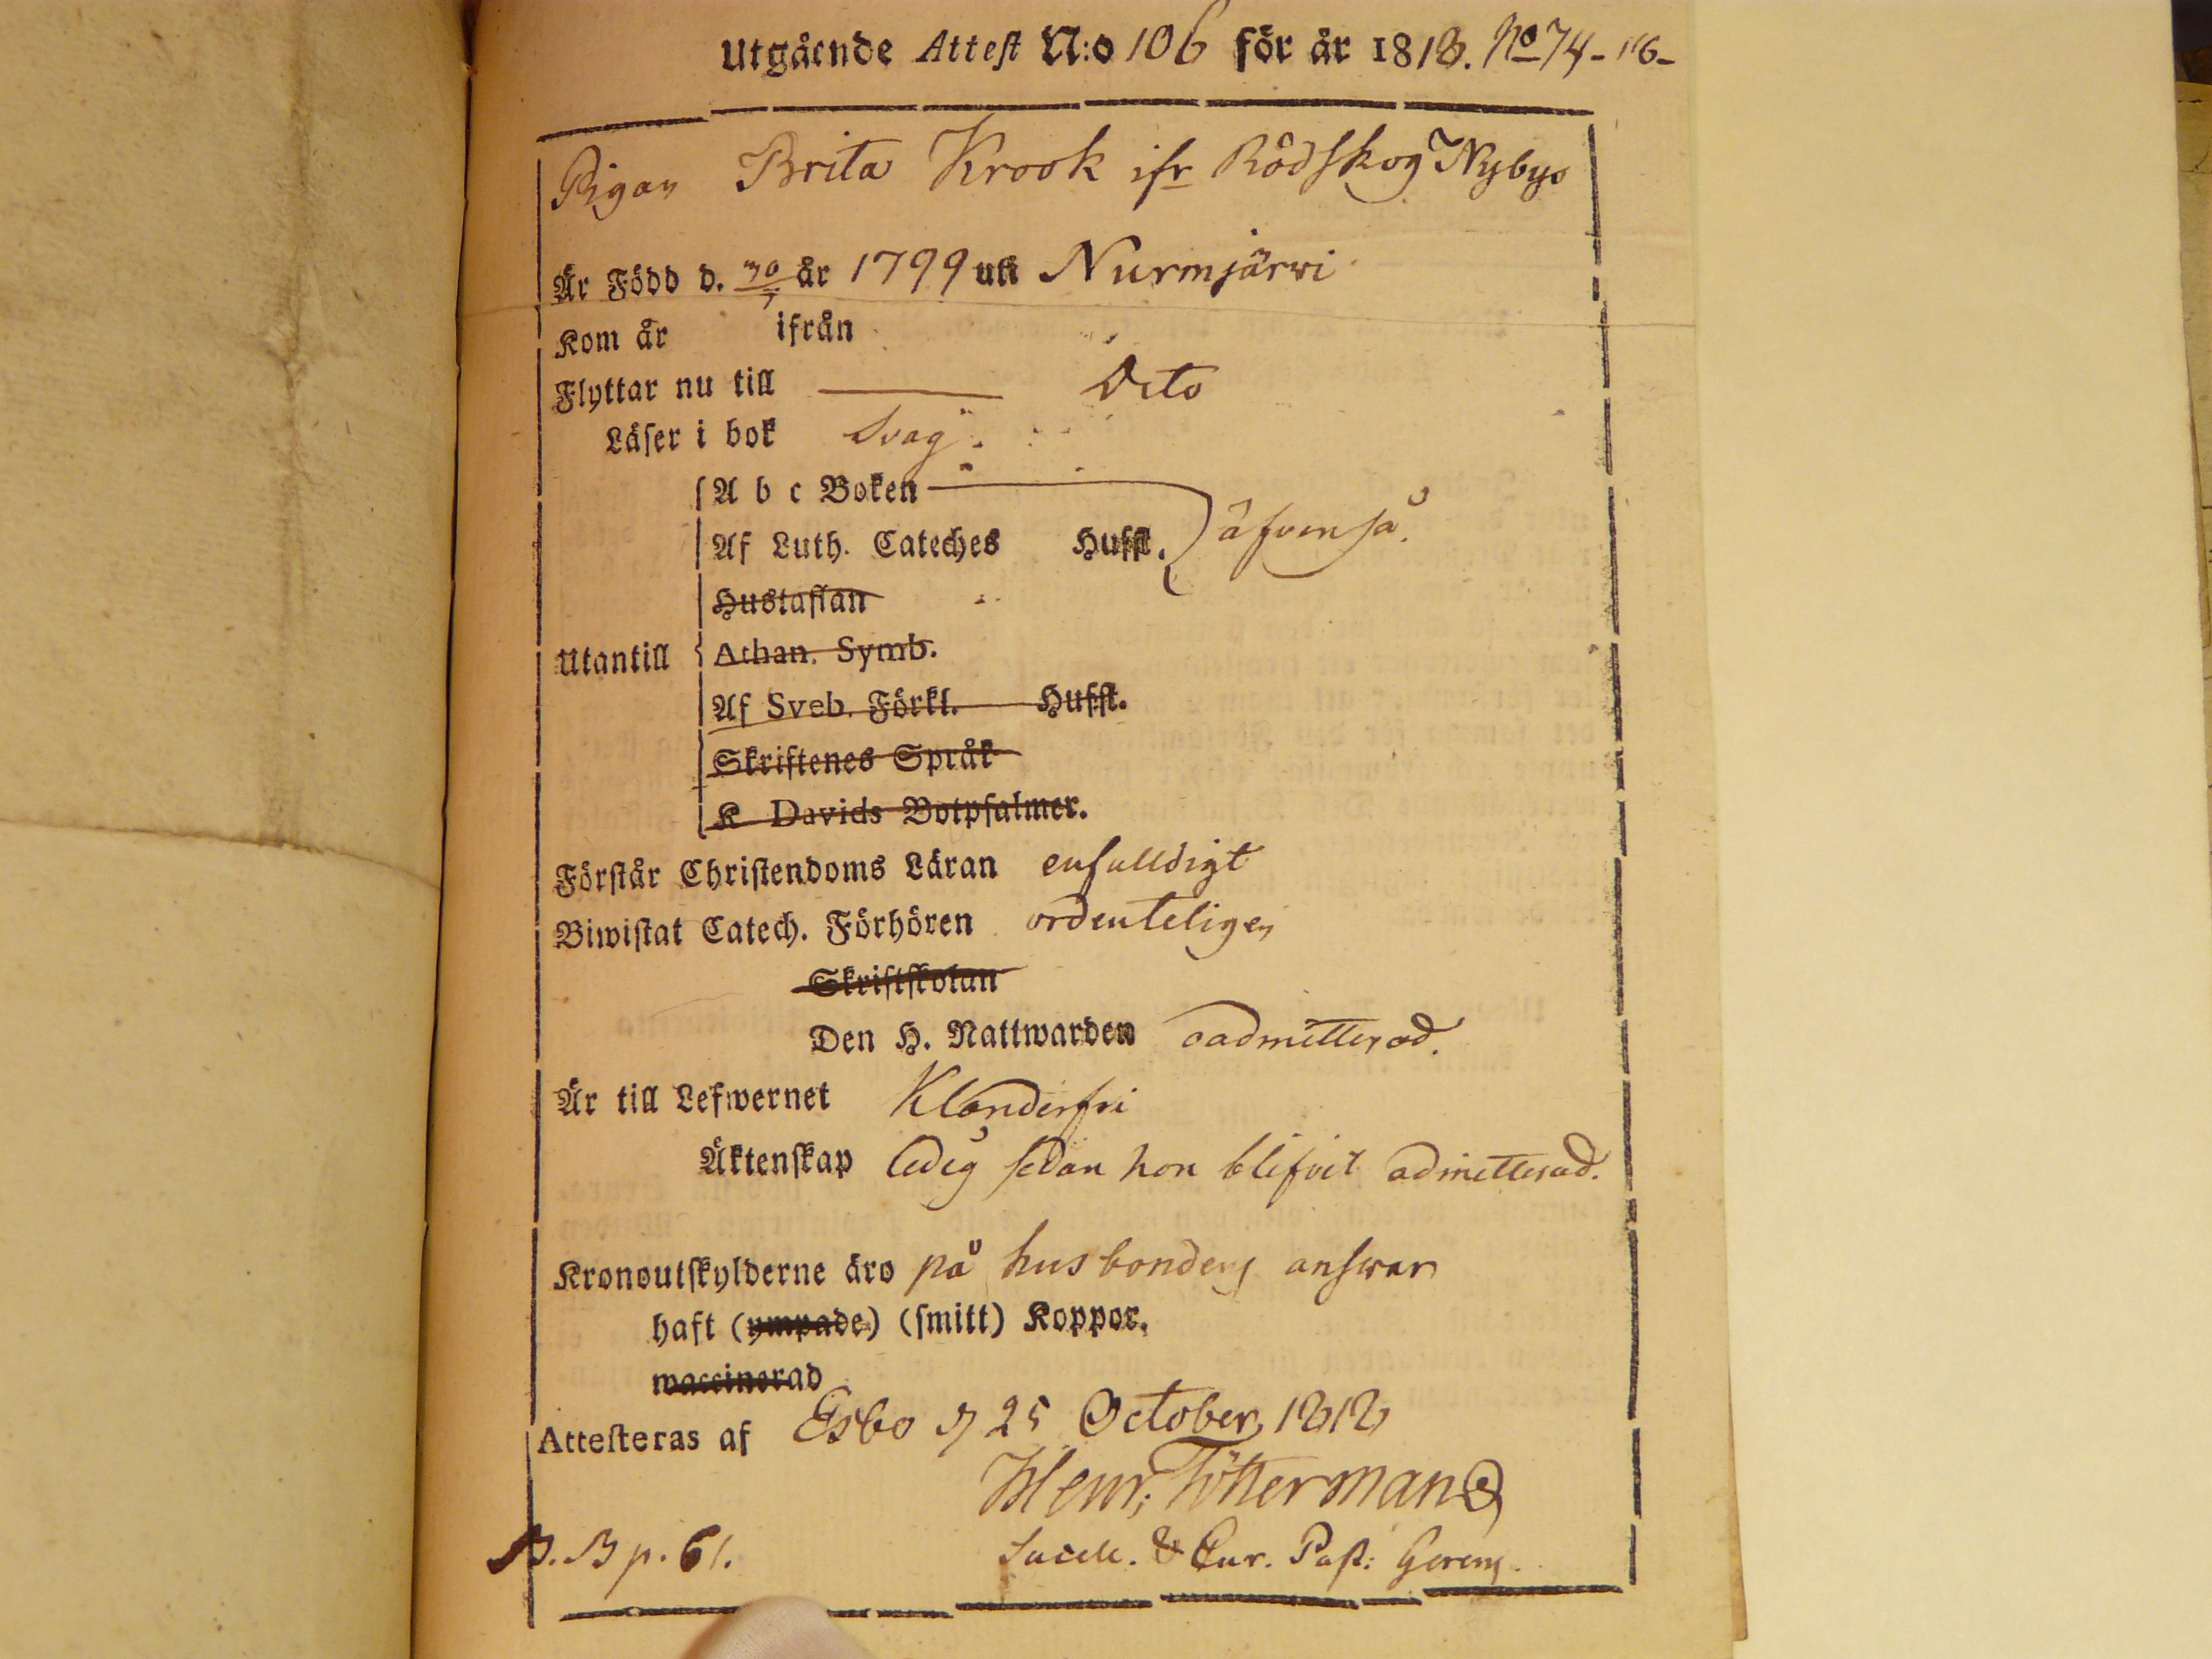 Utgående Attest N:o 106 för år 1818. No 74-
Pigan Brita Krook ifr Rödskog Nybys
Är Född d. 30/7 år 1799 uti Nurmjärwi
Kom år ifrån
Flyttar nu till Dito
Läser i bok Svag.
A b c Boken
Af Luth. Cateches Hufst. äfvenså.
Hustaflan
Utantill Athan. Symb.
Af Sveb. Förkl. Hufst.
Skriftenes Språk
K Davids Botpsalmer.
Förstår Christendoms Läran enfalldigt
Biwistat Catech. Förhören ordenteligen
Skriftskolan
Den H. Nattwarden oadmitterad.
Är till Lefwernet Klanderfri
Äktenskap ledig sedan hon blifvit admitterad.
Kronoutskylderne äro på husbondens answar
haft (ympade) (smitt) Koppor.
waccinerad
Attesteras af Esbo d 25 October 1818
Henr: Töttermann
B. B p. 61. Sacell. & Cur. Past: Gerens.